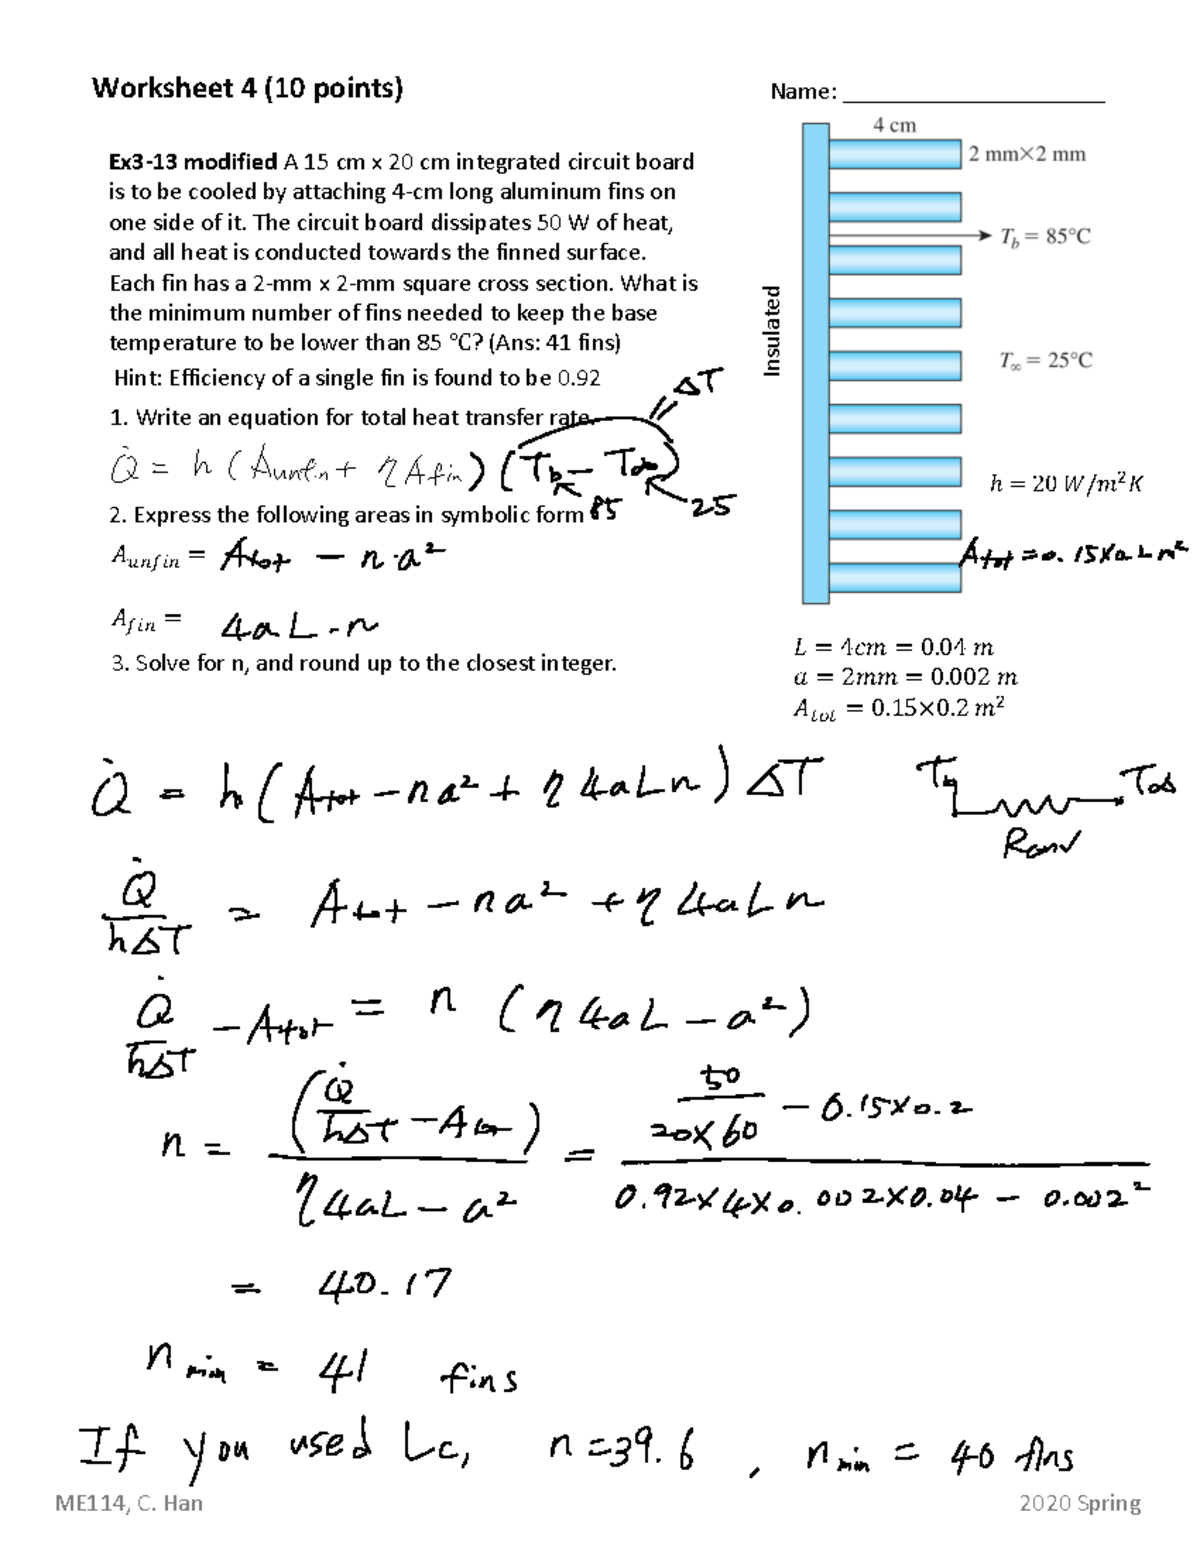 Worksheet 4 (10 points)
Name:
Ex3-13 modified A 15 cm x 20 cm integrated circuit board
is to be cooled by attaching 4-cm long aluminum fins on
one side of it. The circuit board dissipates 50 W of heat,
and all heat is conducted towards the finned surface.
Each fin has a 2-mm x 2-mm square cross section. What is
the minimum number of fins needed to keep the base
temperature to be lower than 85 °C? (Ans: 41 fins)
Hint: Efficiency of a single fin is found to be 0.92
4 cm
2 mm×2 mm
T_b = 85°C
Insulated
T_∞ = 25°C
h = 20 W/m²K
A_tot = 0.15×0.2 m²
L = 4cm = 0.04 m
a = 2mm = 0.002 m
A_tot = 0.15×0.2 m²
1. Write an equation for total heat transfer rate
ΔT
Q̇ = h (A_unfin + η A_fin) (T_b − T_∞)
85
25
2. Express the following areas in symbolic form
A_unfin = A_tot − n·a²
A_fin = 4aL·n
3. Solve for n, and round up to the closest integer.
Q̇ = h (A_tot − na² + η 4aLn) ΔT
T_b
T_∞
R_conv
Q̇/hΔT = A_tot − na² + η 4aLn
Q̇/hΔT − A_tot = n (η 4aL − a²)
n = (Q̇/hΔT − A_tot) / η 4aL − a² = 50/20×60 − 0.15×0.2 / 0.92×4×0.002×0.04 − 0.002²
= 40.17
n_min = 41 fins
If you used Lc, n=39.6, n_min = 40 fins
ME114, C. Han
2020 Spring